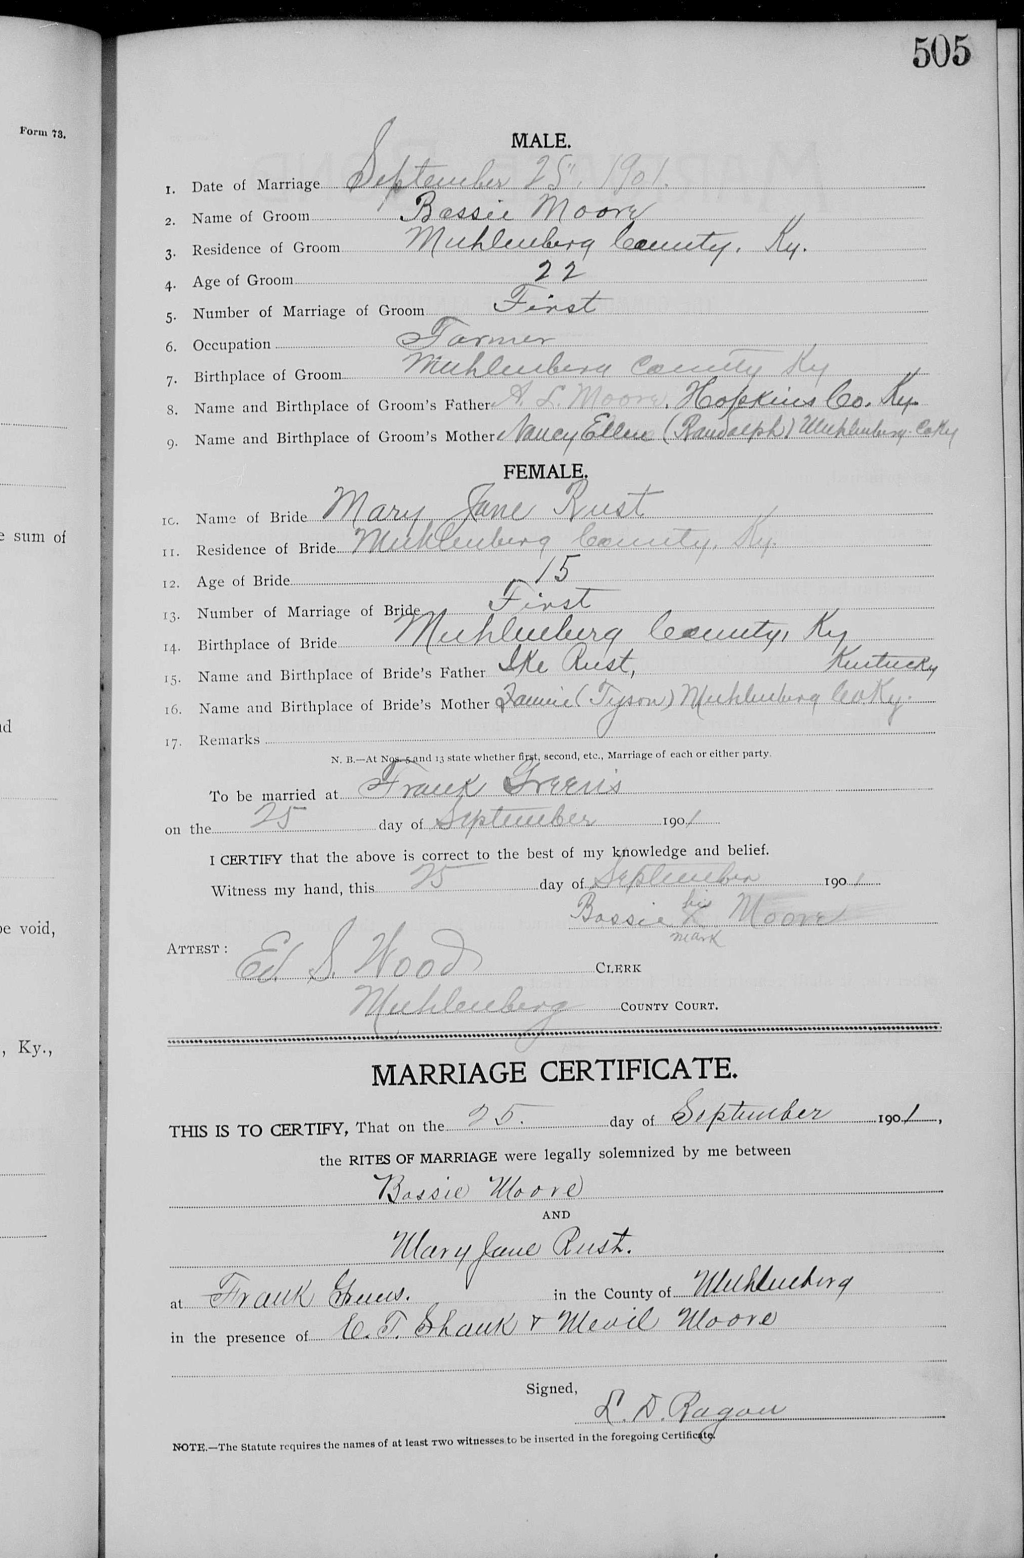 505
Form 73.
MALE.
1. Date of Marriage September 25", 1901.
2. Name of Groom Bossie Moore
3. Residence of Groom Muhlenberg County, Ky.
4. Age of Groom 22
5. Number of Marriage of Groom First
6. Occupation Farmer
7. Birthplace of Groom Muhlenberg County Ky
8. Name and Birthplace of Groom's Father A. L. Moore, Hopkins Co. Ky.
9. Name and Birthplace of Groom's Mother Nancy Ellen (Randolph) Muhlenberg Co Ky
FEMALE.
10. Name of Bride Mary Jane Rust
11. Residence of Bride Muhlenberg County, Ky.
12. Age of Bride 15
13. Number of Marriage of Bride First
14. Birthplace of Bride Muhlenberg County, Ky
15. Name and Birthplace of Bride's Father Ike Rust, Kentucky
16. Name and Birthplace of Bride's Mother (Tyson) Muhlenberg Co Ky.
17. Remarks
N. B.—At Nos. 5 and 13 state whether first, second, etc., Marriage of each or either party.
To be married at Frank Green's
on the 25 day of September 1901
I CERTIFY that the above is correct to the best of my knowledge and belief.
Witness my hand, this 25 day of September 1901
his
Bossie X Moore
mark
ATTEST:
Ed. S. Wood CLERK
Muhlenberg COUNTY COURT.
MARRIAGE CERTIFICATE.
THIS IS TO CERTIFY, That on the 25. day of September 1901,
the RITES OF MARRIAGE were legally solemnized by me between
Bossie Moore
AND
Mary Jane Rust.
at Frank Greens. in the County of Muhlenberg
in the presence of E. T. Shauk & Mevil Moore
Signed,
L. D. Ragon
NOTE.—The Statute requires the names of at least TWO witnesses to be inserted in the foregoing Certificate.
e sum of
be void,
, Ky.,